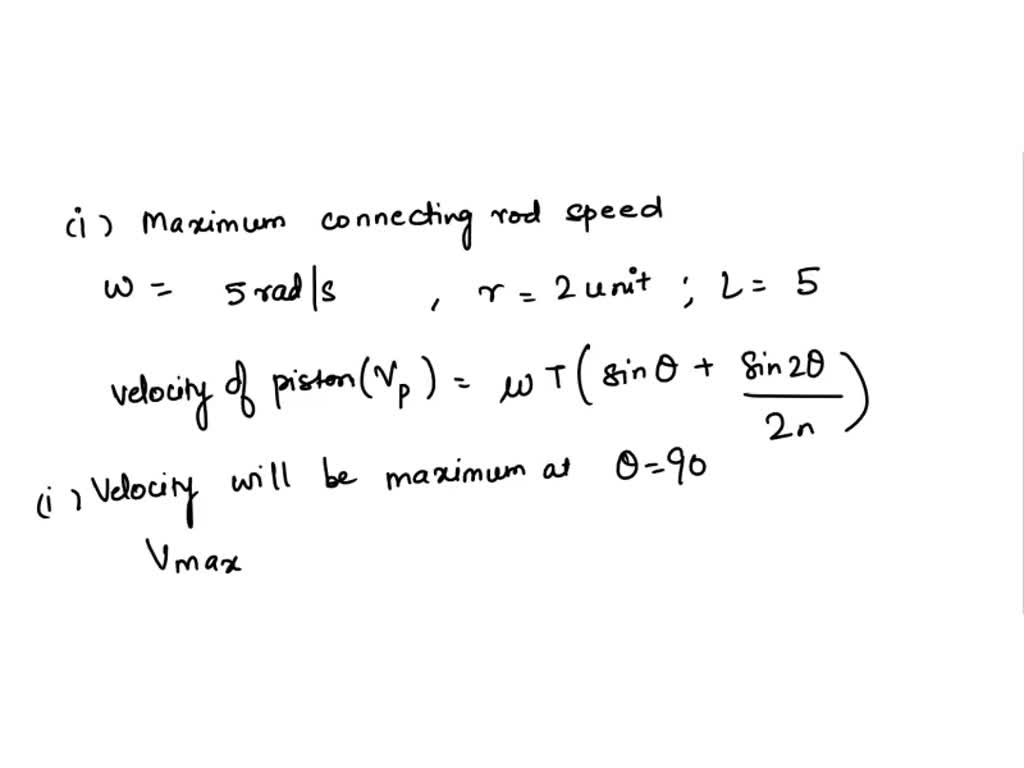 (i) Maximum connecting rod speed
w = 5 rad/s , r = 2 unit ; L = 5
velocity of piston (Vp) = wT (sin θ + sin 2θ / 2n)
(i) Velocity will be maximum at θ = 90
Vmax